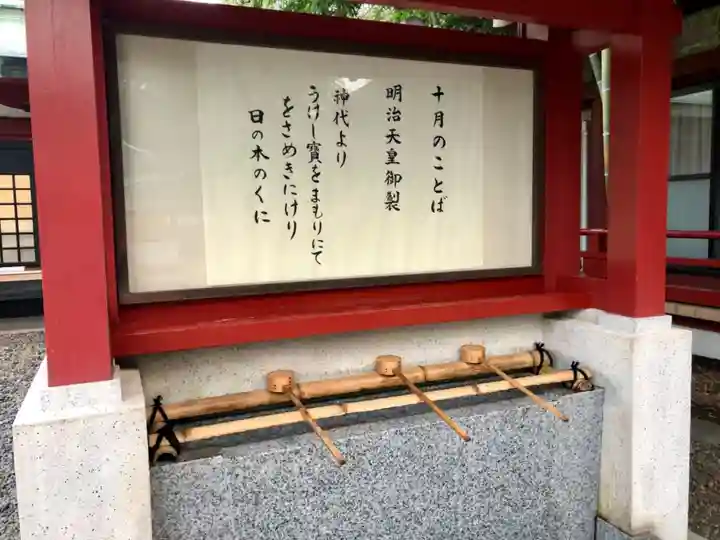 十月のことば
明治天皇御製
神代より
うけし寳をまもりにて
をさめきにけり
日の本のくに